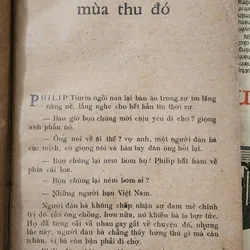 mùa thu đó
PHILIP Tiurin ngồi nán lại bàn ăn trong sự im lặng
nặng nề, lắng nghe cho hết bản tin thời sự.
— Bao giờ bọn chúng mới chịu yên đi cho? giọng
anh phẫn nộ.
— Ông nói về ai thế? vợ anh, một người đàn bà
cục mịch, có giọng nói và bàn tay đàn ông hỏi lại.
— Bọn chúng lại ném bom họ! Philip hất hàm về
phía cái loa.
— Bọn chúng lại ném bom ai?
— Những người bạn Việt Nam.
Người đàn bà không chấp nhận sự đam mê chính
trị đó của ông chồng, hơn nữa, nó khiến bà ta bực tức.
Họ đã từng cãi vã nhau gay gắt về chuyện đó, nhưng
lúc này, người đàn bà chẳng thấy hứng thú gì mà cãi
nhau, vì bà còn bận phải đi chợ.